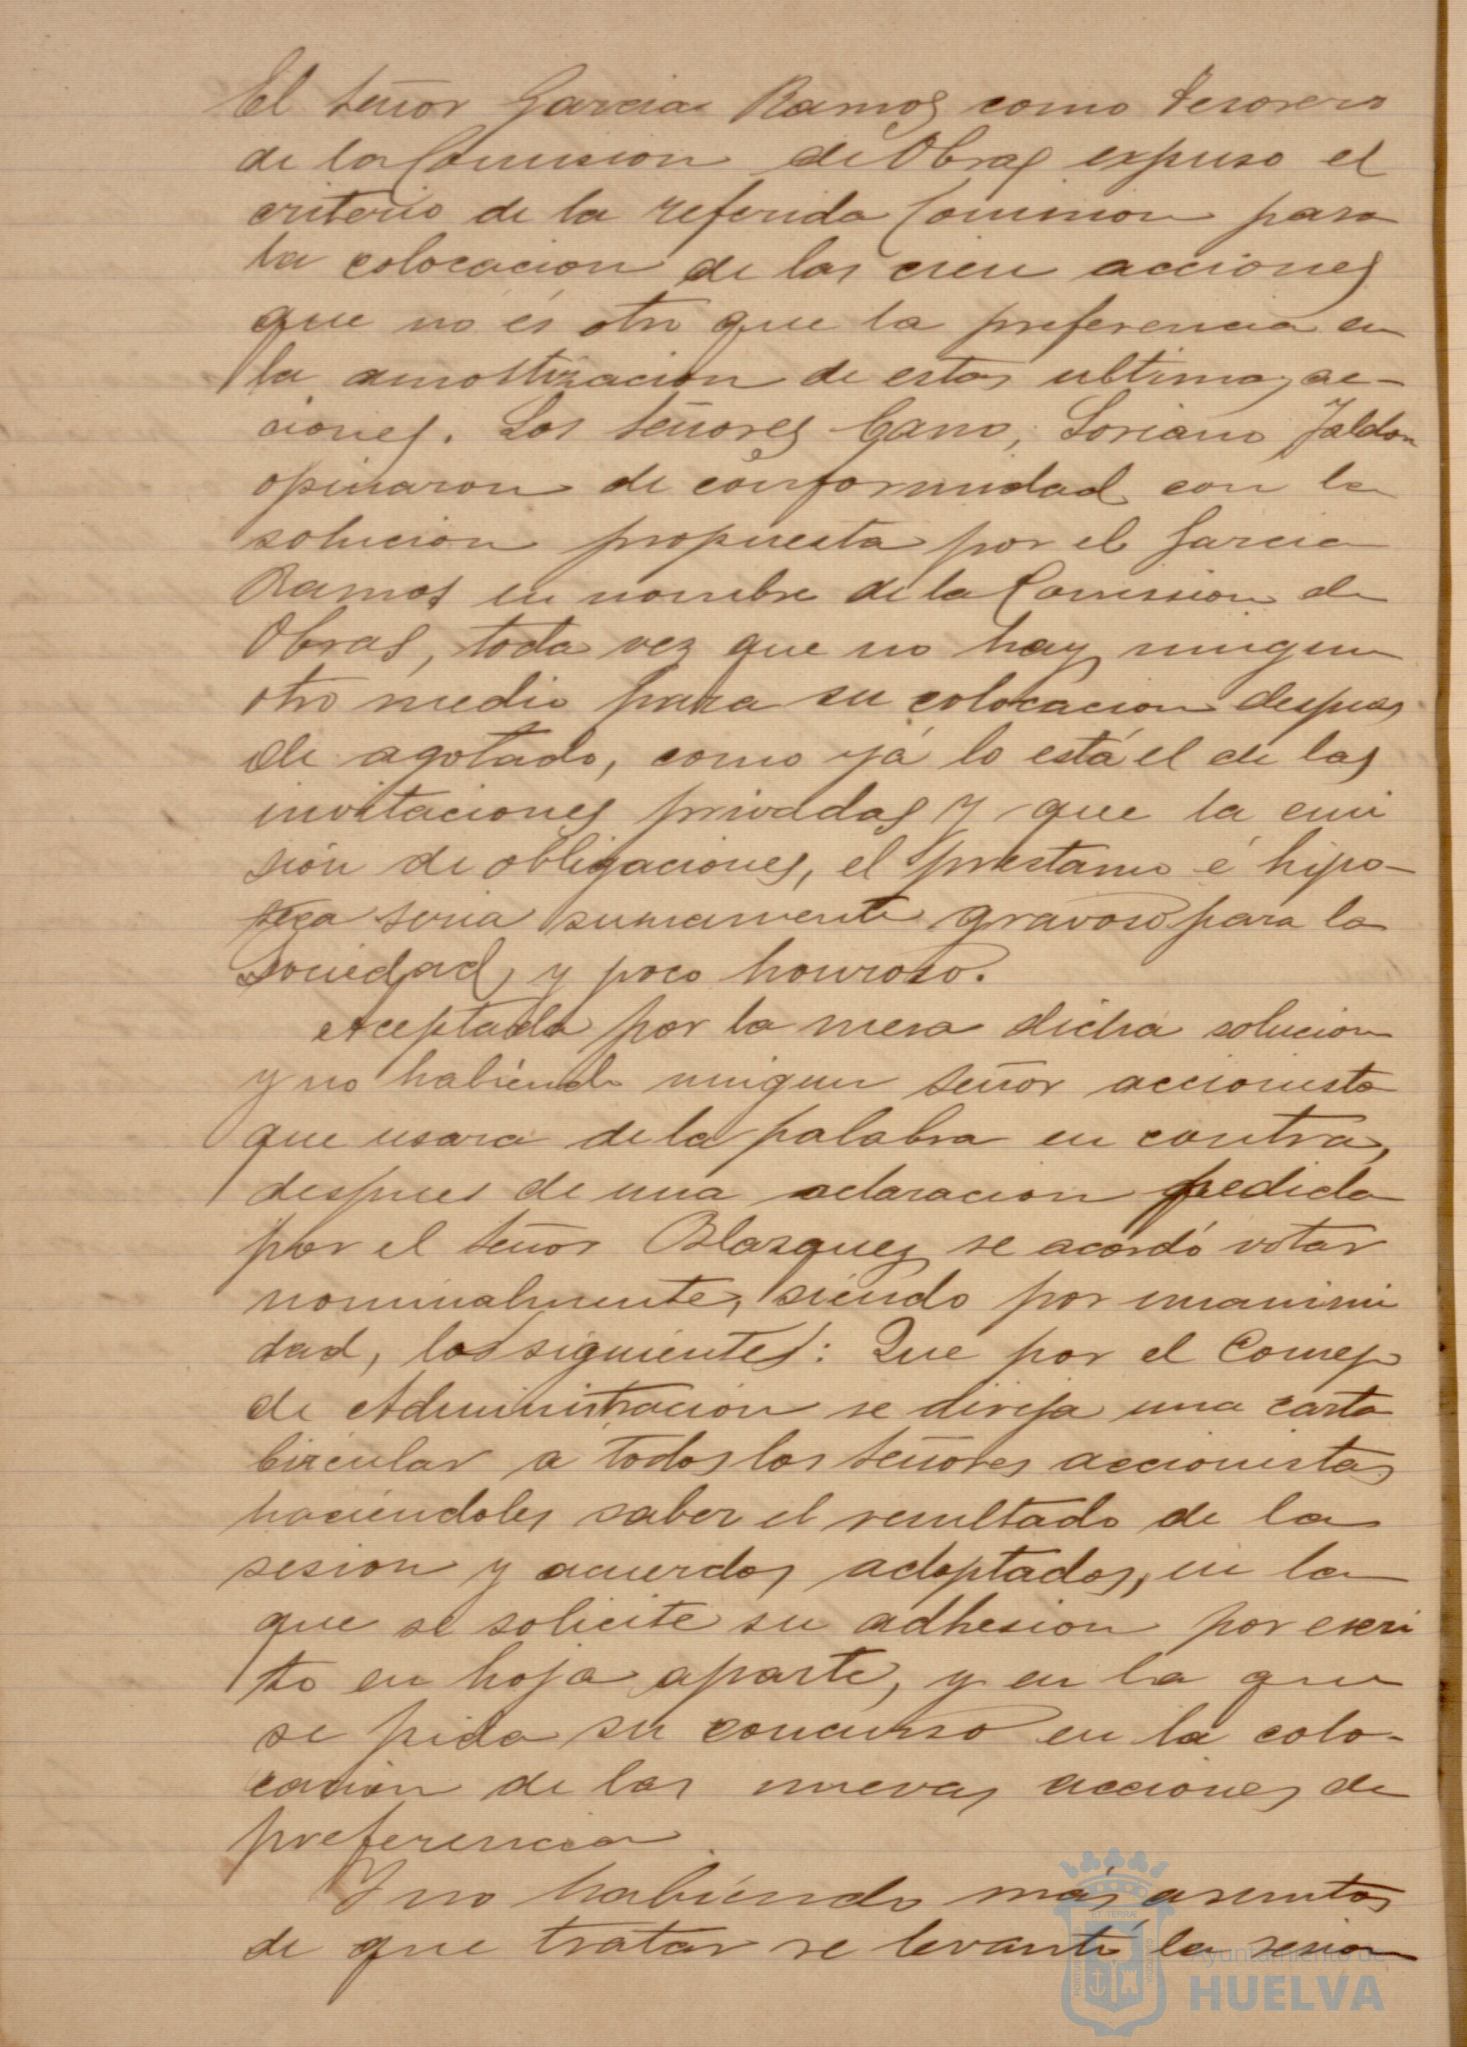 El señor Garcia Ramos como Tesorero
de la Comision de Obras expuso el
criterio de la referida Comision para
la colocacion de las cien acciones
que no és otro que la preferencia en
la amortizacion de estas ultimas ac-
ciones. Los señores Cano, Soriano Jaldon
opinaron de conformidad con la
solucion propuesta por el Garcia
Ramos en nombre de la Comission de
Obras, toda vez que no hay ningun
otro medio para su colocacion despues
de agotado, como yá lo está el de las
invitaciones privadas y que la emi
sión de obligaciones, el prestamo é hipo-
teca seria sumamente gravoso para la
Sociedad, y poco honroso.
Aceptada por la mesa dicha solucion
y no habiendo ningun señor accionista
que usara de la palabra en contra,
despues de una aclaracion pedida
por el señor Blazquez se acordó votar
nominalmente, siendo por unanimi
dad, los siguientes: Que por el Consejo
de Administracion se dirija una carta
circular a todos los señores accionistas
haciendoles saber el resultado de la
sesion y acuerdos adoptados, en la
que se solicite su adhesion por escri
to en hoja aparte, y en la que
se pida su concurso en la colo-
cacion de las nuevas acciones de
preferencia
Y no habiendo más asuntos
de que tratar se levantó la sesion
Ayuntamiento de
HUELVA